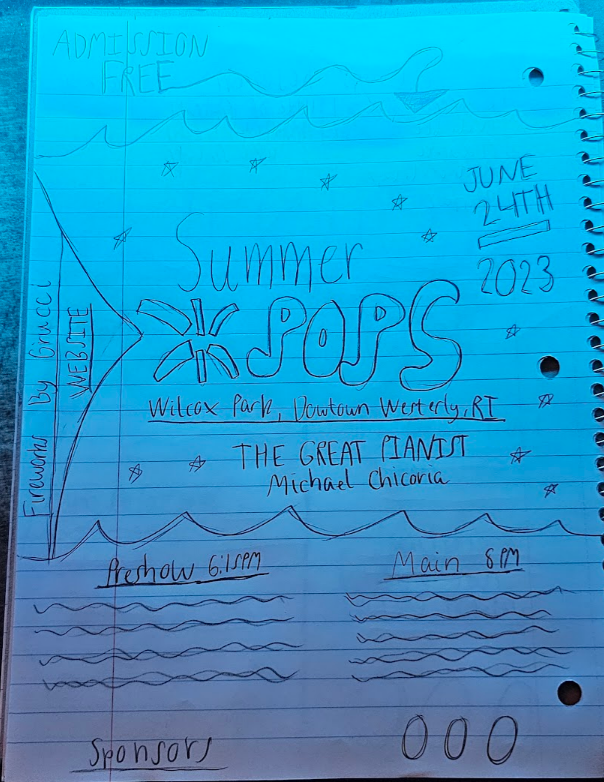 ADMISSION
FREE
JUNE
24TH
2023
Summer
POPS
Wilcox Park, Dowtown Westerly, RI
THE GREAT PIANIST
Michael Chicoria
Fireworks By Grucci
WEBSITE
Preshow 6:15PM
Main 8PM
Sponsors